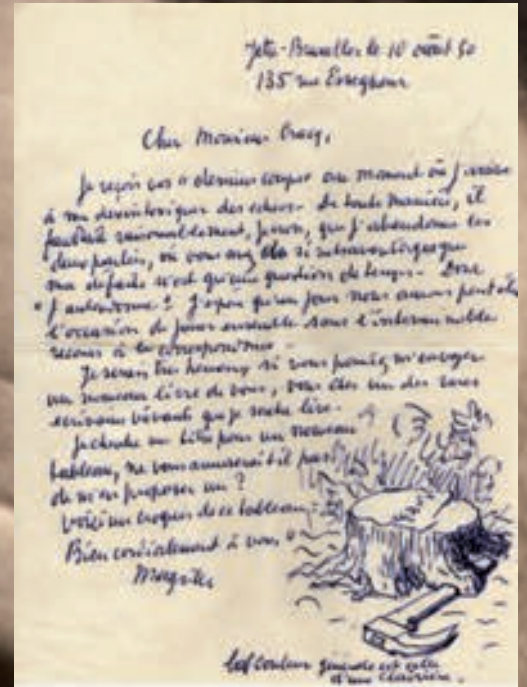 Jette-Bruxelles le 10 août 50
135 rue Esseghem
Cher Monsieur Gracq,
Je reçois vos "derniers coups au moment où j'arrive
à me désintoxiquer des échecs. De toute manière, il
faudrait raisonnablement, je crois, que j'abandonne les
deux parties, où vous avez de si
ma défaite n'est qu'une question de temps. Donc
"j'abandonne"! J'espère qu'un jour nous aurons peut-être
l'occasion de jouer ensemble sans l'interminable
recours à la correspondance.
Je serais très heureux si vous pouviez m'envoyer
un nouveau livre de vous, vous êtes un des rares
écrivains vivants que je sache lire.
Je cherche un titre pour un nouveau
tableau, ne vous amuserait-il pas
de m'en proposer un?
Voici un croquis de ce tableau:
Bien cordialement à vous,
Magritte
la couleur générale est celle
d'une clairière.